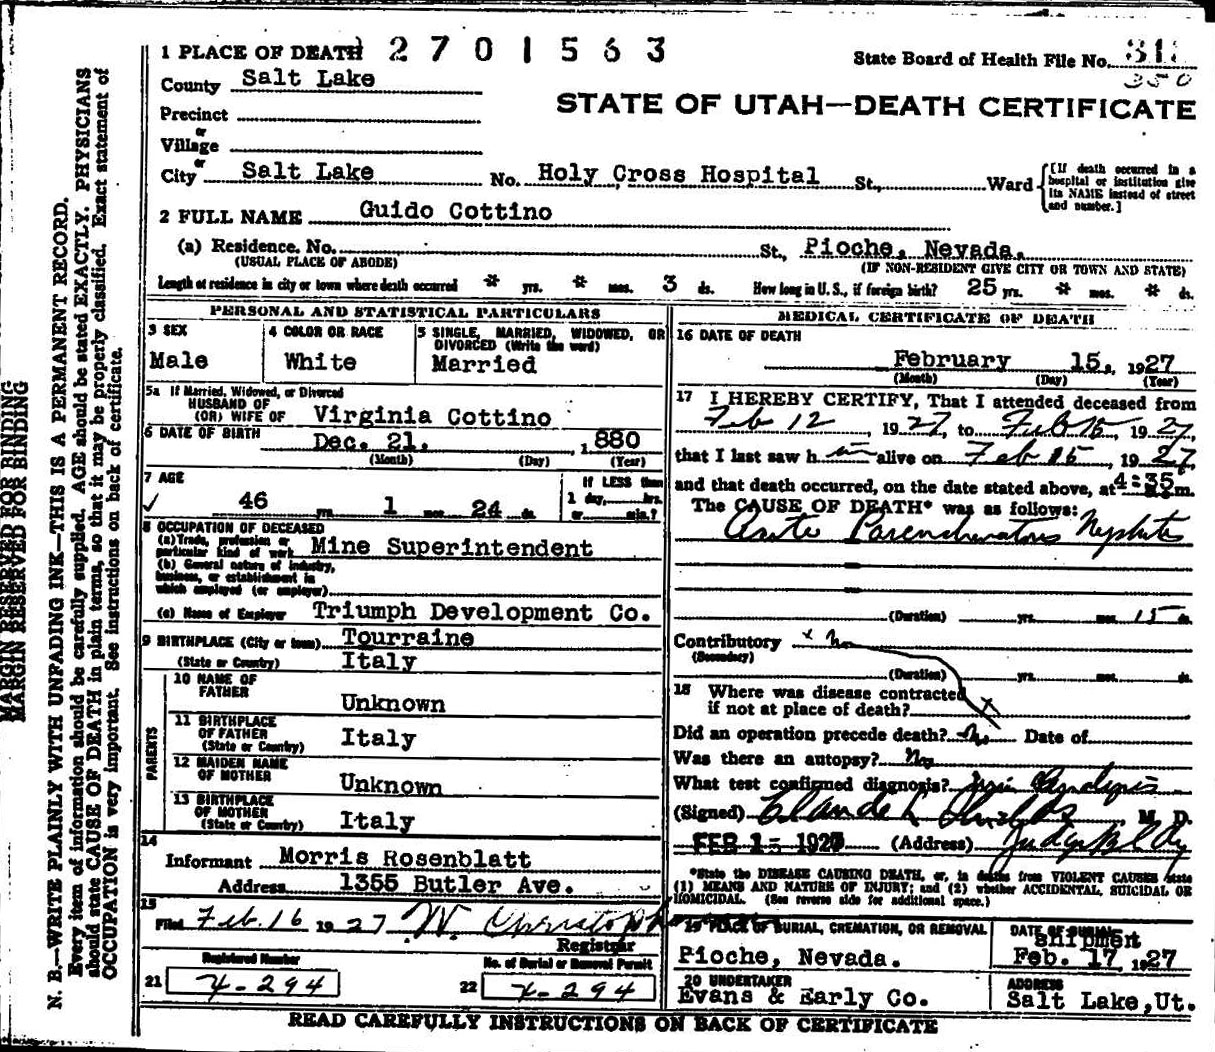 1 PLACE OF DEATH 2701563
State Board of Health File No.
350
County Salt Lake
STATE OF UTAH—DEATH CERTIFICATE
Precinct
or
Village
or
City Salt Lake No. Holy Cross Hospital St., Ward
[If death occurred in a
hospital or institution give
its NAME instead of street
and number.]
2 FULL NAME Guido Cottino
(a) Residence. No. St., Pioche, Nevada.
(USUAL PLACE OF ABODE) (IF NON-RESIDENT GIVE CITY OR TOWN AND STATE)
Length of residence in city or town where death occurred * yrs. * mos. 3 ds. How long in U. S., if foreign birth? 25 yrs. * mos. * ds.
PERSONAL AND STATISTICAL PARTICULARS
3 SEX
Male
4 COLOR OR RACE
White
5 SINGLE, MARRIED, WIDOWED, OR
DIVORCED (Write the word)
Married
5a If Married, Widowed, or Divorced
HUSBAND OF
(OR) WIFE OF Virginia Cottino
6 DATE OF BIRTH Dec. 21. , 1880
(Month) (Day) (Year)
7 AGE
46 1 mos. 24 ds.
If LESS than
1 day, hrs.
or min.?
8 OCCUPATION OF DECEASED
(a) Trade, profession or
particular kind of work Mine Superintendent
(b) General nature of industry,
business, or establishment in
which employed (or employer)
(c) Name of Employer Triumph Development Co.
9 BIRTHPLACE (City or town) Tourraine
(State or Country) Italy
PARENTS
10 NAME OF
FATHER Unknown
11 BIRTHPLACE
OF FATHER
(State or Country) Italy
12 MAIDEN NAME
OF MOTHER Unknown
13 BIRTHPLACE
OF MOTHER
(State or Country) Italy
14
Informant Morris Rosenblatt
Address 1355 Butler Ave.
15
Filed Feb. 16 1927 W.
Registrar
Registered Number
21 X-294
No. of Burial or Removal Permit
22 X-294
MEDICAL CERTIFICATE OF DEATH
16 DATE OF DEATH
February 15, 1927
(Month) (Day) (Year)
17 I HEREBY CERTIFY, That I attended deceased from
Feb 12, 1927, to Feb 15, 1927,
that I last saw him alive on Feb 15, 1927,
and that death occurred, on the date stated above, at 4:35 m.
The CAUSE OF DEATH* was as follows:
Acute Parenchymatous Nephritis
(Duration) yrs. mos. 15 ds.
Contributory x no
(Secondary)
(Duration) yrs. mos. ds.
18 Where was disease contracted
if not at place of death? x
Did an operation precede death? No Date of
Was there an autopsy? No
What test confirmed diagnosis?
(Signed) Claude L. Shields M. D.
FEB 15 1927 (Address) Judge Bldg
*State the DISEASE CAUSING DEATH, or, in deaths from VIOLENT CAUSES state
(1) MEANS AND NATURE OF INJURY; and (2) whether ACCIDENTAL, SUICIDAL OR
HOMICIDAL. (See reverse side for additional space.)
19 PLACE OF BURIAL, CREMATION, OR REMOVAL
Pioche, Nevada.
DATE OF BURIAL
Shipment
Feb. 17, 1927
20 UNDERTAKER
Evans & Early Co.
ADDRESS
Salt Lake, Ut.
READ CAREFULLY INSTRUCTIONS ON BACK OF CERTIFICATE
MARGIN RESERVED FOR BINDING
MARGIN RESERVED FOR BINDING
N. B.—WRITE PLAINLY WITH UNFADING INK—THIS IS A PERMANENT RECORD.
Every item of information should be carefully supplied. AGE should be stated EXACTLY. PHYSICIANS
should state CAUSE OF DEATH in plain terms, so that it may be properly classified. Exact statement of
OCCUPATION is very important. See instructions on back of certificate.